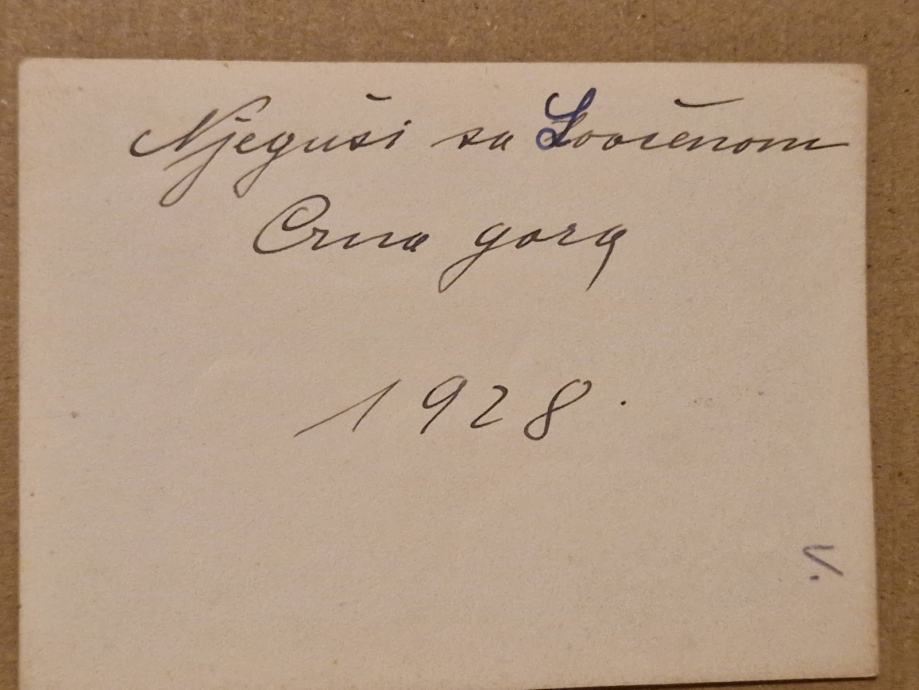 Njeguši sa Lovćenom
Crna gora
1928.